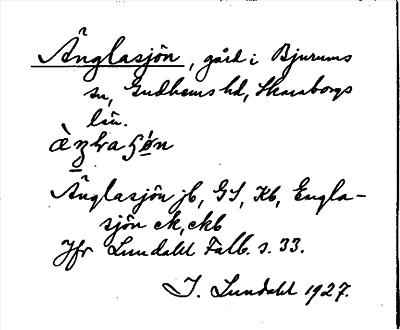 Änglasjön, gård i Bjurums
sn, Gudhems hd, Skaraborgs
län.
Änglasjön jb, GS, Kb, Engla-
sjön ek, ekb
Jfr Lundahl Falb. s. 33.
I. Lundahl 1927.